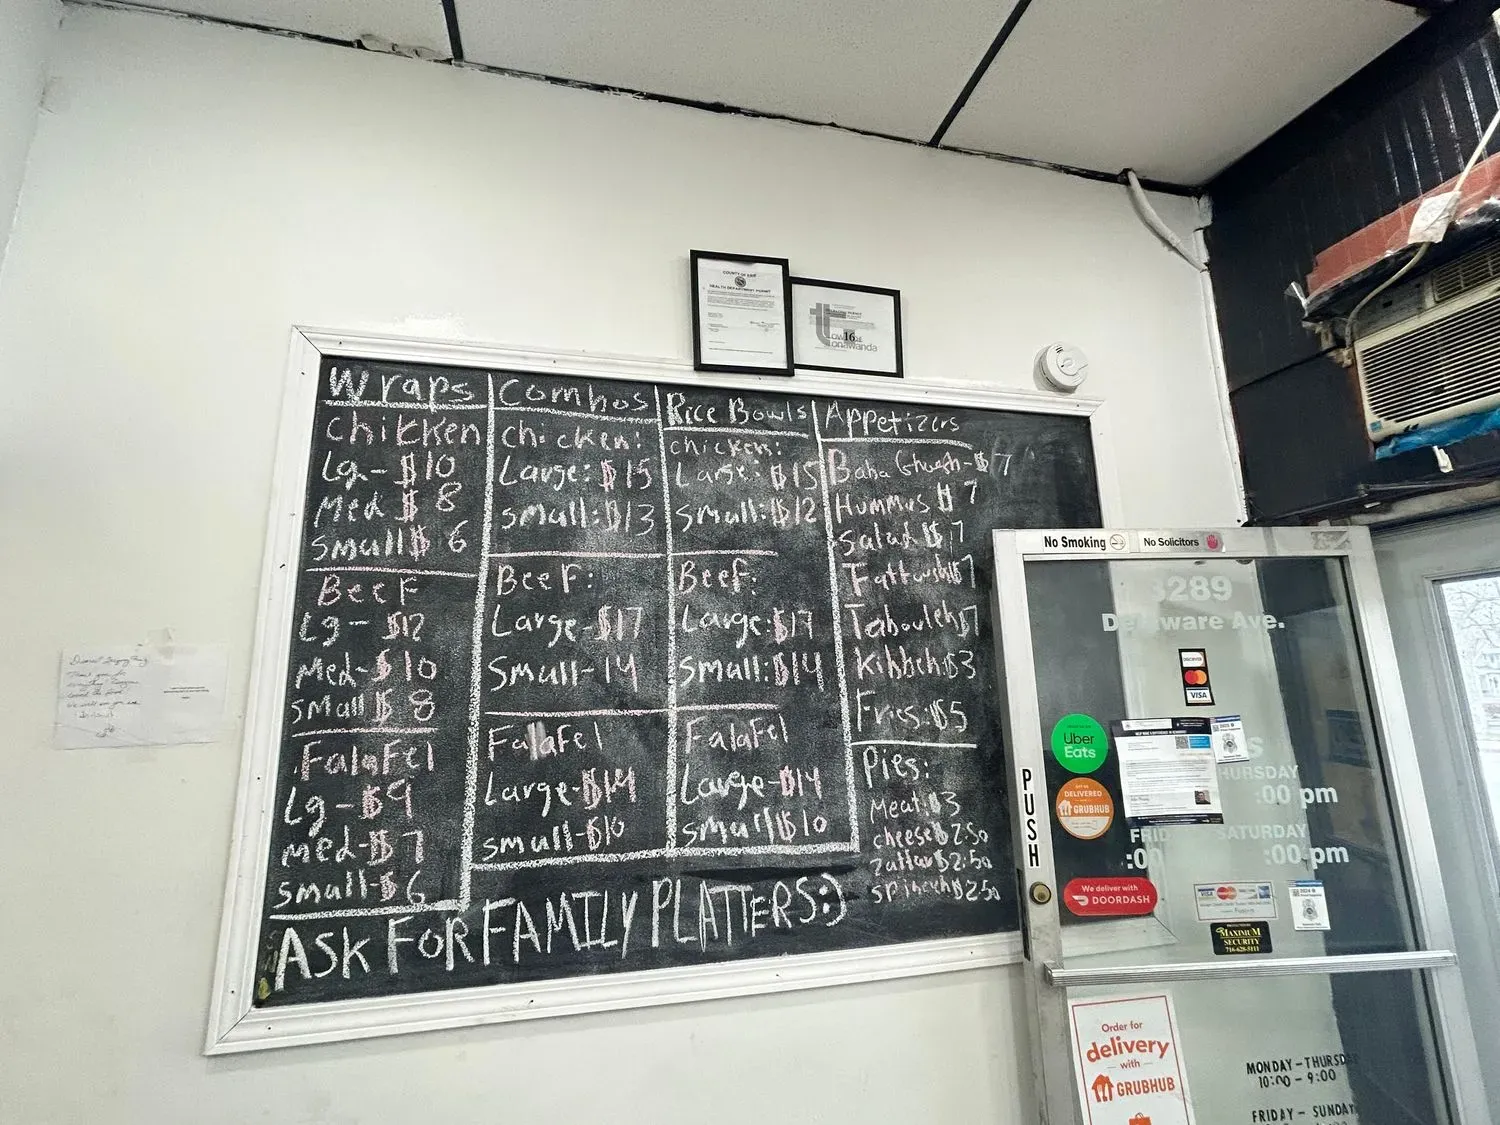 COUNTY OF ERIE
HEALTH DEPARTMENT PERMIT
Town of
16
Tonawanda
Wraps
Chicken
Lg - $10
Med $8
Small $6
Beef
Lg - $12
Med - $10
Small $8
Falafel
Lg - $9
Med - $7
Small - $6
Combos
Chicken:
Large: $15
Small: $13
Beef:
Large - $17
Small - 14
Falafel
Large - $14
Small - $10
Rice Bowls
Chicken:
Large: $15
Small: $12
Beef:
Large: $17
Small: $14
Falafel
Large - $14
Small $10
Appetizers
Baba Ghush - $7
Hummus $7
Salad $7
Fattoush $7
Tabouleh $7
Kibbeh $3
Fries: $5
Pies:
Meat: $3
cheese $2.50
Zattar $2.50
Spinech $2.50
ASK FOR FAMILY PLATTERS :)
No Smoking
No Solicitors
3289
Delaware Ave.
DISCOVER
VISA
Uber
Eats
DELIVERED
GRUBHUB
PUSH
HURSDAY
:00 pm
FRID
SATURDAY
:00
:00 pm
We deliver with
DOORDASH
VISA
MAXIMUM
SECURITY
716-628-5111
Order for
delivery
with
GRUBHUB
MONDAY - THURSD
10:00 - 9:00
FRIDAY - SUNDAY